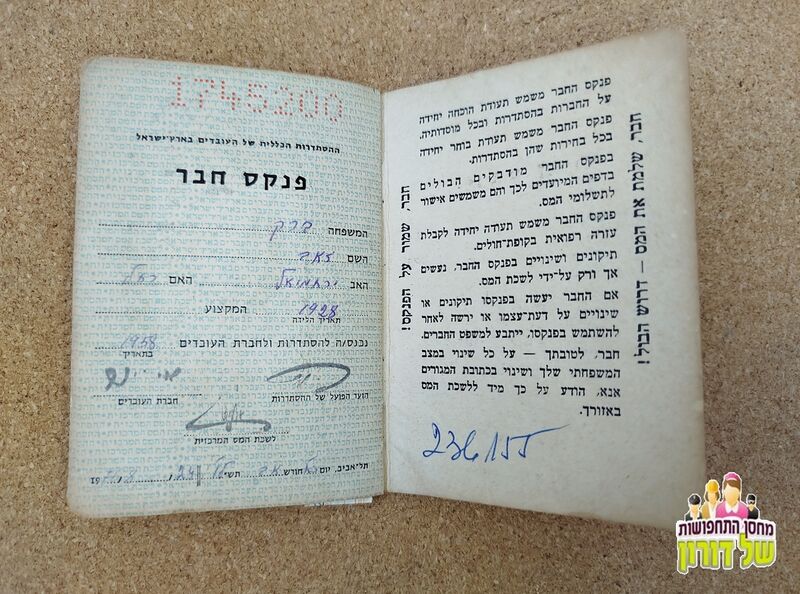 1745200
ההסתדרות הכללית של העובדים בארץ־ישראל
פנקס חבר
המשפחה ברק
השם זאב
האב ירחמיאל האם רחל
1928 המקצוע
תאריך הלידה
נכנס/ה להסתדרות ולחברת העובדים 1958
בתאריך
הועד הפועל של ההסתדרות
חברת העובדים
לשכת המס המרכזית
תל־אביב, יום חודש אב תש 19
פנקס החבר משמש תעודת הוכחה יחידה
על החברות בהסתדרות ובכל מוסדותיה.
פנקס החבר משמש תעודת בוחר יחידה
בכל בחירות שהן בהסתדרות.
בפנקס החבר מודבקים הבולים
בדפים המיועדים לכך והם משמשים אישור
לתשלומי המס.
פנקס החבר משמש תעודה יחידה לקבלת
עזרה רפואית בקופת־חולים.
תיקונים ושינויים בפנקס החבר, נעשים
אך ורק על־ידי לשכת המס.
אם החבר יעשה בפנקסו תיקונים או
שינויים על דעת־עצמו או ירשה לאחר
להשתמש בפנקסו, ייתבע למשפט החברים.
חבר, לטובתך — על כל שינוי במצב
המשפחתי שלך ושינוי בכתובת המגורים
אנא, הודע על כך מיד ללשכת המס
באזורך.
חבר, שמור על הפנקס!
חבר, שלמת את המס — דרוש הבול!
236155
מחסן התחפושות
של דורון